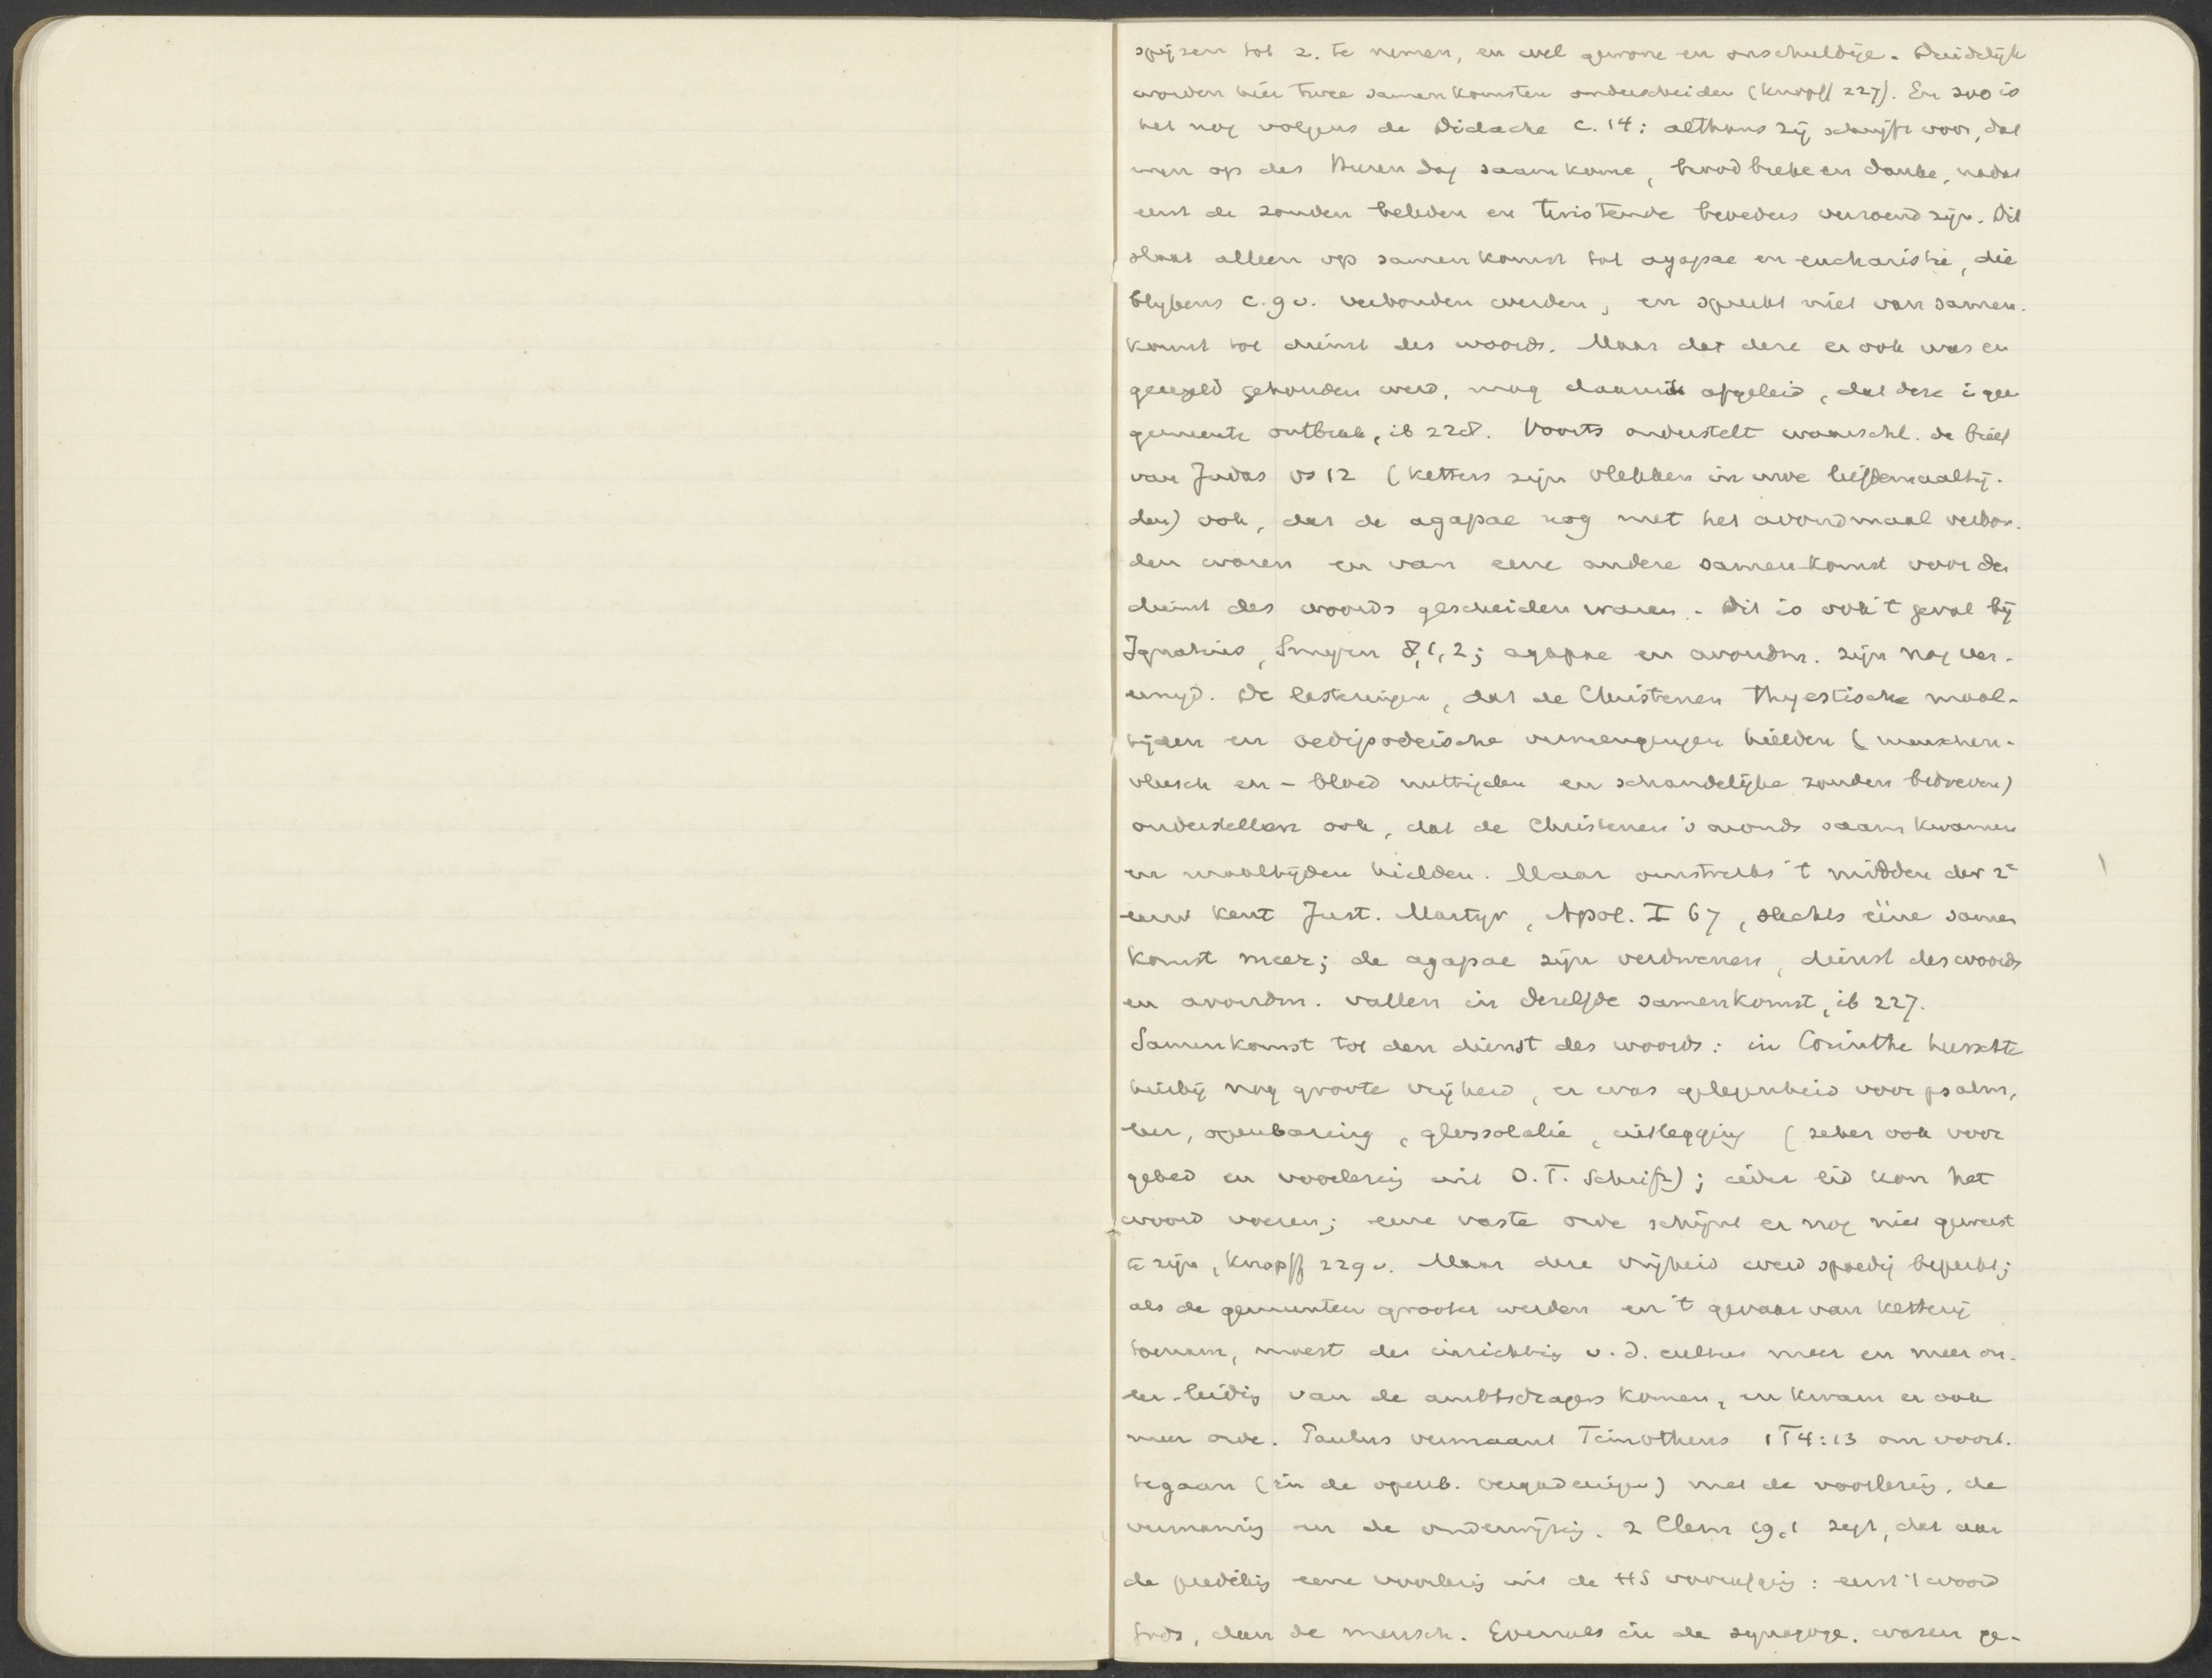 spijzen tot z. te nemen, en wel gewone en onschuldige. Duidelijk
worden hier twee samenkomsten onderscheiden (Knopff 227). En zoo is
het nog volgens de Didache c. 14: althans zij schrijft voor, dat
men op des Heeren dag saamkome, brood breke en danke, nadat
eerst de zonden beleden en twistende broeders verzoend zijn. Dit
slaat alleen op samenkomst tot agapae en eucharistie, die
blijkens c. 9 v. verbonden werden, en spreekt niet van samen-
komst tot dienst des woords. Maar dat deze er ook was en
geregeld gehouden werd, mag daaruit afgeleid, dat deze i gee
gemeente ontbrak, ib 228. Voorts onderstelt waarschl. de brief
van Judas vs 12 (ketters zijn vlekken in uwe liefdemaaltij-
den) ook, dat de agapae nog met het avondmaal verbon-
den waren en van eene andere samenkomst voor den
dienst des woords gescheiden waren. Dit is ook 't geval bij
Ignatius, Smyrn 8,1,2; agapae en avondm. zijn nog ver-
eenigd. De lasteringen, dat de Christenen Thyestische maal-
tijden en oedipodeische vermengingen hielden (menschen-
vleesch en - bloed nuttigden en schandelijke zonden bedreven)
onderstellen ook, dat de Christenen 's avonds saam kwamen
en maaltijden hielden. Maar omstreeks 't midden der 2e
eeuw kent Just. Martyr, Apol. I 67, slechts ééne samen
komst meer; de agapae zijn verdwenen, dienst des woords
en avondm. vallen in dezelfde samenkomst, ib 227.
Samenkomst tot den dienst des woords: in Corinthe heerschte
hierbij nog groote vrijheid, er was gelegenheid voor psalm,
leer, openbaring, glossolalie, uitlegging (zeker ook voor
gebed en voorlezing uit O.T. Schrift); ieder lid kon het
woord voeren; eene vaste orde schijnt er nog niet geweest
te zijn, Knopff 229 v. Maar deze vrijheid werd spoedig beperkt;
als de gemeenten grooter werden en 't gevaar van ketterij
toenam, moest de inrichting v. d. cultus meer en meer on-
er leiding van de ambtsdragers komen, en kwam er ook
meer orde. Paulus vermaant Timotheus 1 T 4:13 om voort
tegaan (in de openb. vergaderingen) met de voorlezing, de
vermaning en de onderwijzing. 2 Clem 19,1 zegt, dat aan
de prediking eene voorlezing uit de HS voorafging: eerst 't woord
Gods, dan de mensch. Evenals in de synagoge, waren ge-